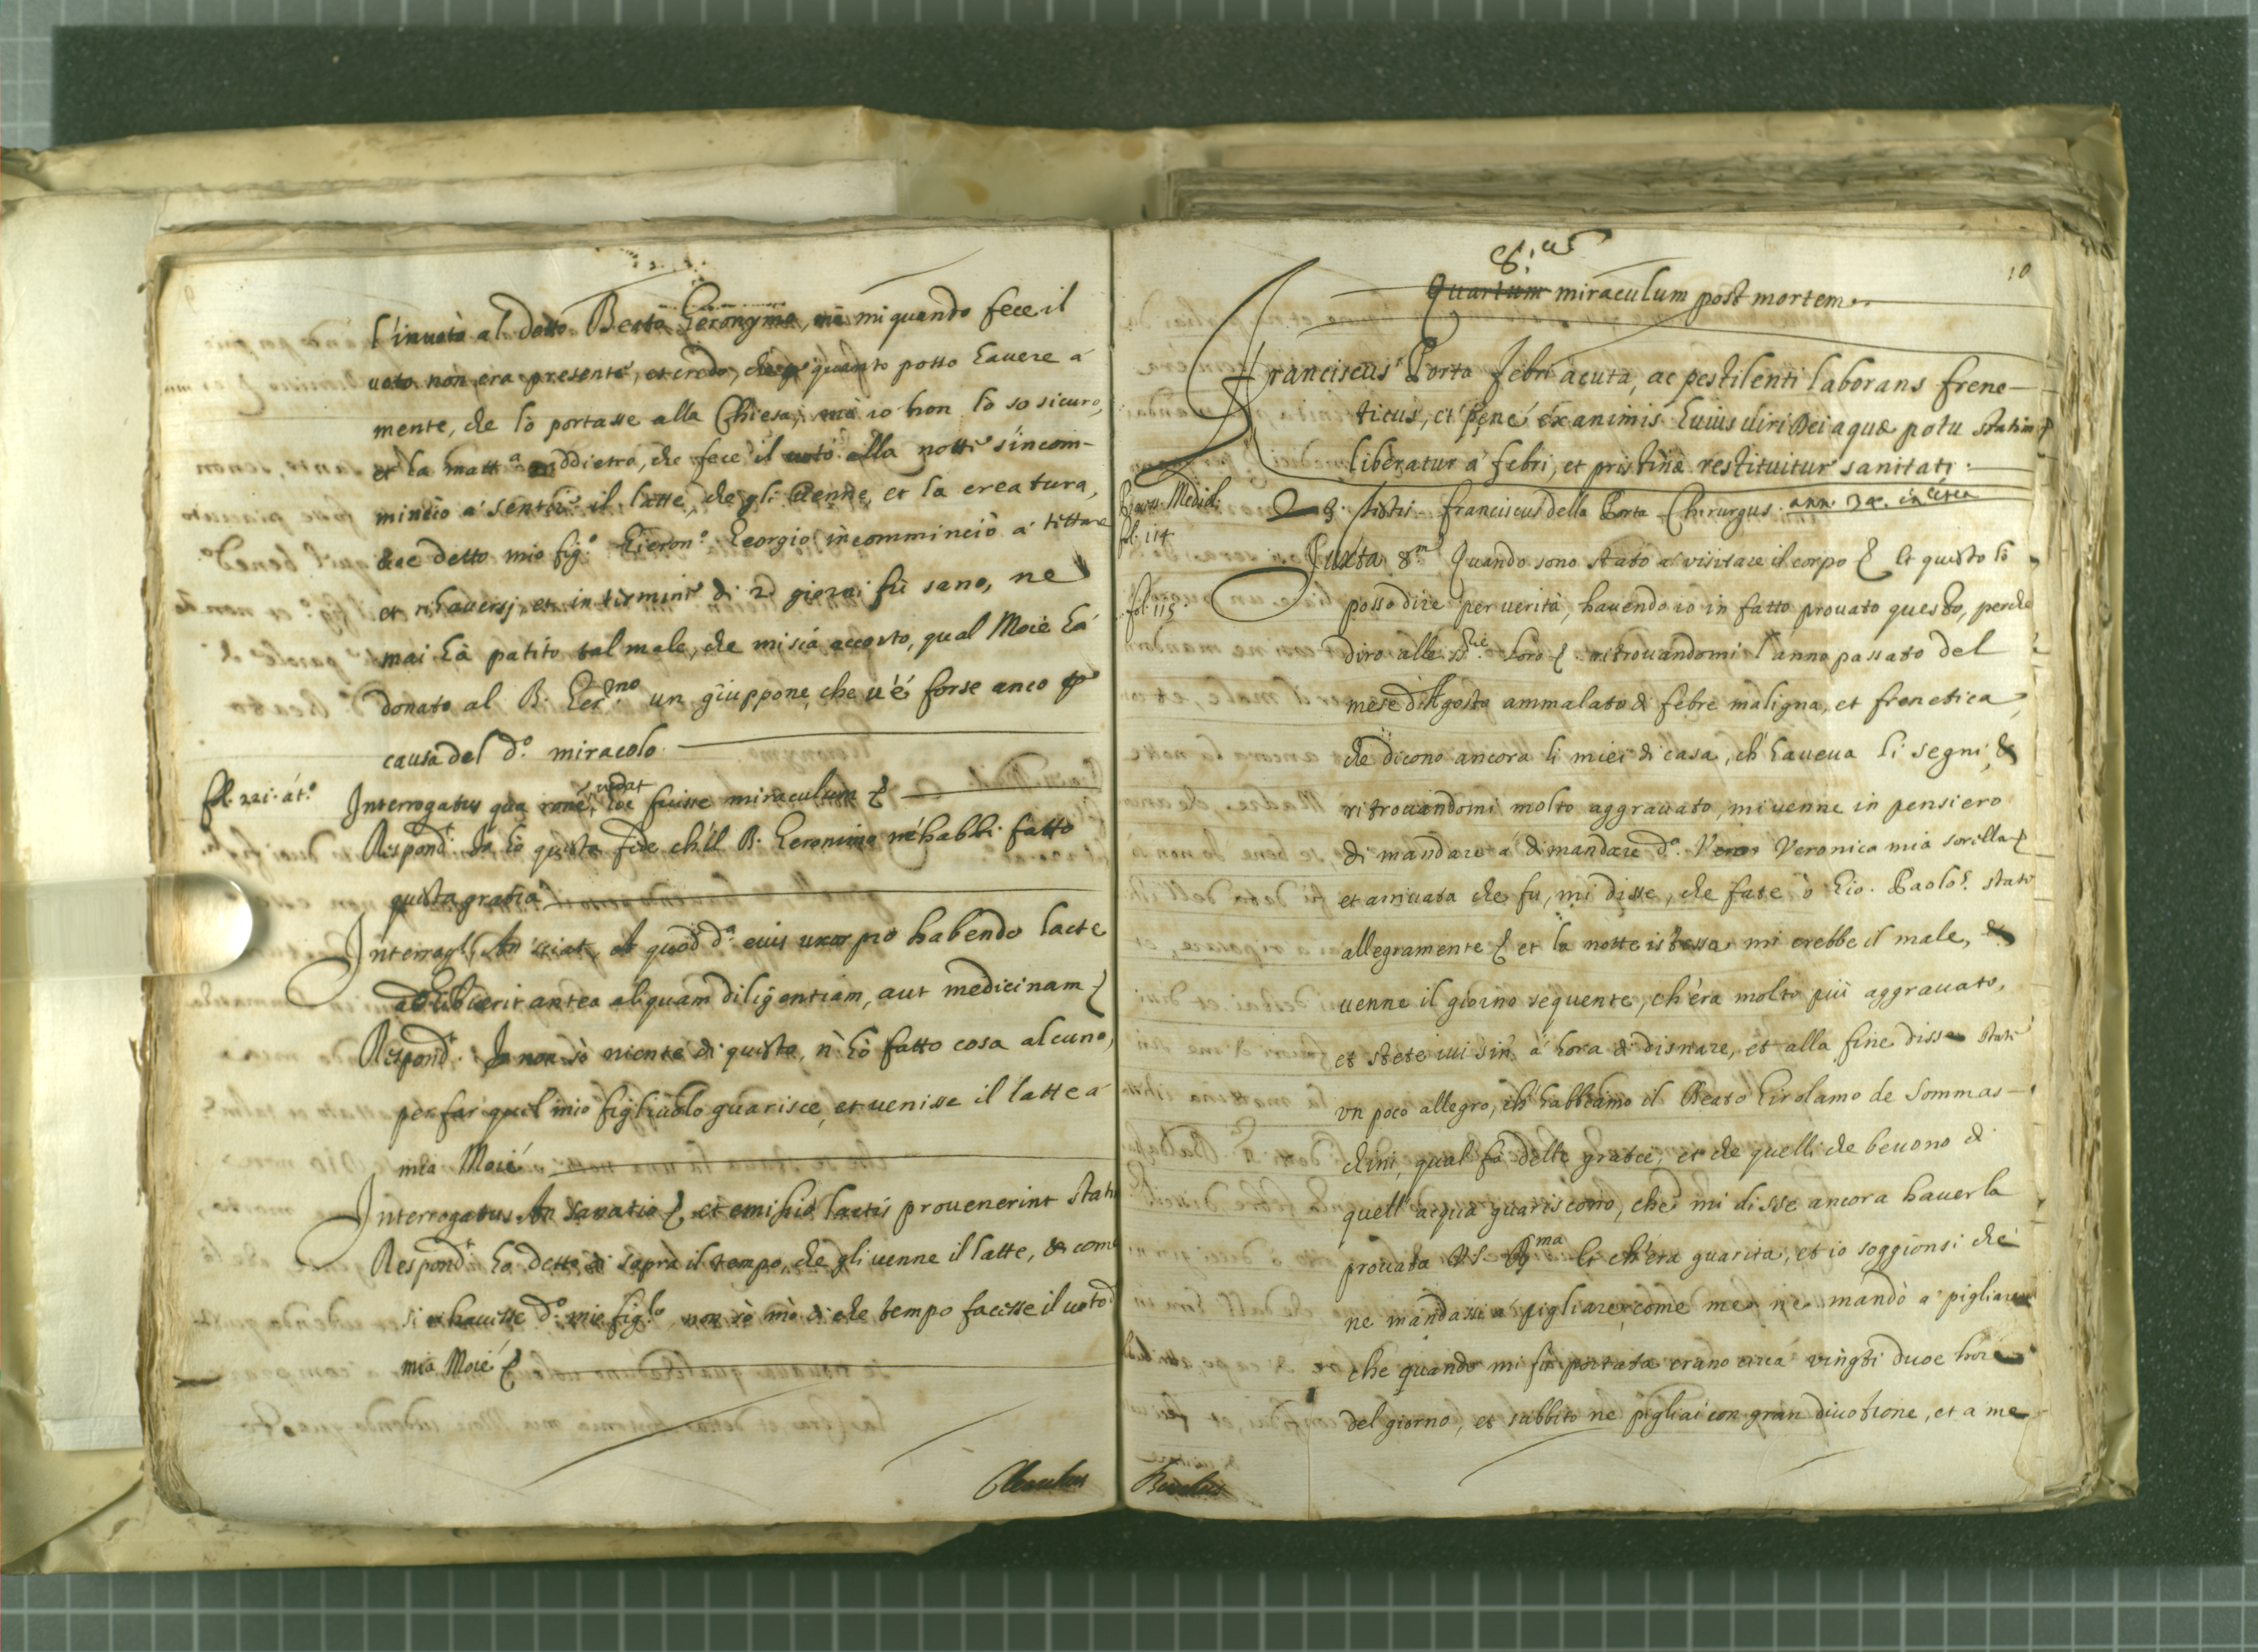 l'inuotò al detto Beato Geronymo, mà mi quando fece il
uoto non era presente, et credo, che p quanto posso hauere a
mente, che lò portasse alla Chiesa, mà io non lò so sicuro,
et la matt.a addietro, che fece il uotò alla notte s'incom-
minciò a sentire il latte, che gli uenne, et la creatura,
cioe detto mio fig.o Gieron.o Georgio incommincio a tettare
et rihauersj, et in termine di 2 giorni fù sano, ne
mai hà patito tal male, che mi sia accorto, qual Moie hà
donato al B. Ger.mo un giuppone, che u'é forse anco p
causa del d.o miracolo.
fol. 221. át.o
Interrogatus qua rone, credat hoc fuisse miraculum &
Respond.t Io hò questa fede ch'il B. Geronimo m'habbi fatto
questa gratia
Interrog.s An sciat, et quod d.a eius uxor pro habendo lacte
adhibuerit antea aliquam diligentiam, aut medicinam &
Respond.t Io non sò niente di questo, n' hò fatto cosa alcuna,
per far qu'il mio figliuolo guarisce, et uenisse il latte a
mia Moié
Interrogatus An sanatio & et emissio lactis prouenerint stati
Respond.t hò detto di sopra il tempo, che gli uenne il latte, & come
si rihauesse d.o mio fig.lo, non sò mò di che tempo facesse il uoto d
mia Moié &
10
8.us
Quartum miraculum post mortem
Franciscus Porta febri acuta, ac pestilenti laborans frene-
ticus, et pené exanimis huius uiri Dei aquæ potu statim
liberatur á febri, et pristinæ restituitur sanitati.
Proces. Mediol.
fol. 114
28 testis - Franciscus della Porta Chirurgus. ann. 34. in circa
Juxta 8.m Quando sono stato a' visitare il corpo & Et questo lò
fol. 115.
posso dire per uerità, hauendo io in fatto prouato questo, perche
diro alle SS.rie loro & ritrouandomi l'anno passato del
mese d'Agosto ammalato di febre maligna, et frenetica,
che dicono ancora li miei di casa, ch'haueua li segni, &
ritrouandomi molto aggrauato, mi uenne in pensiero
di mandare a' dimandare d.a Veronica mia sorella
et arriuata che fu, mi disse, che fate ò Gio. Paolo &. state
allegramente & et la notte istessa mi crebbe il male, &
uenne il giorno sequente, ch'éra molto più aggrauato,
et stete iui sin' á hora di disnare, et alla fine disse state
vn poco allegro, ch'habbiamo il Beato Girolamo de Sommas-
chini, qual fà delle gratie; et che quelli che beuono di
quell'acqua guariscono, che mi disse ancora hauerla
prouata V.S. R.ma Et ch'éra guarita, et io soggionsi che
ne mandassi a' pigliare, come me ne mandò a' pigliare
che quando mi fù portata erano circa vingti duoe hore
del giorno, et subbito ne pigliai con gran diuotione, et a me